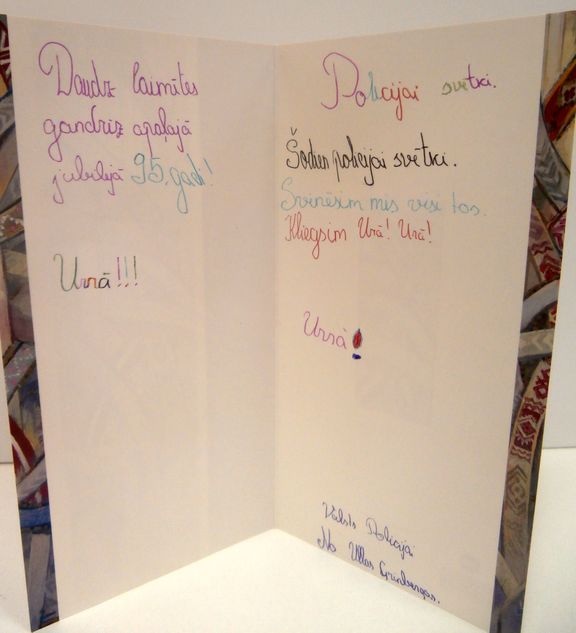 Daudz laimītes
gandrīz apaļajā
jubilejā 95.gadi!
Urrā!!!
Policijai svētki.
Šodien policijai svētki.
Svinēsim mēs visi tos.
Kliegsim Urā! Urā!
Urrā!
Valsts Policija
No Ullas Grinbergas.